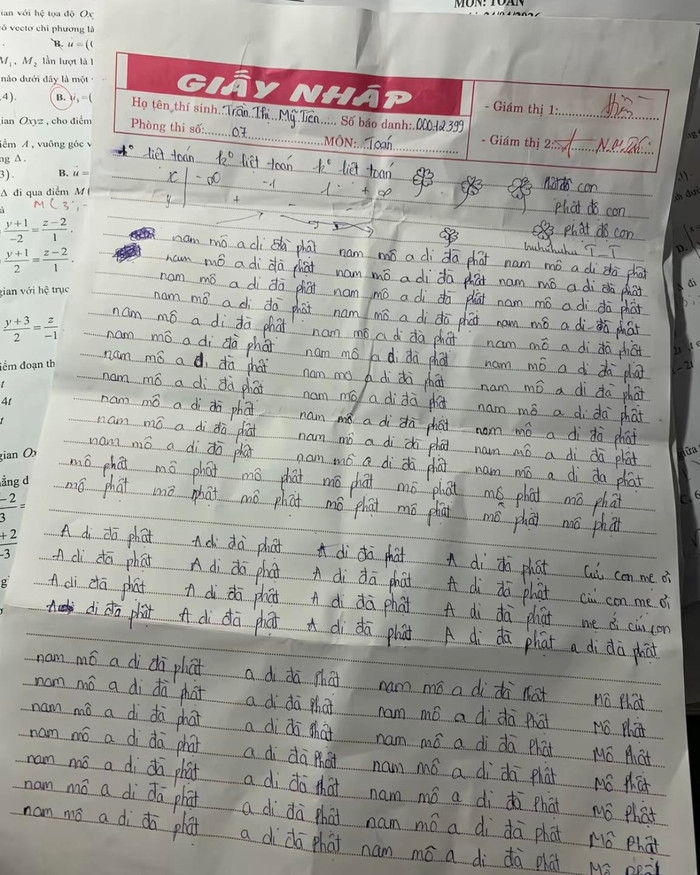 MÔN: TOÁN
GIẤY NHÁP
Họ tên thí sinh: Trần Thị Mỹ Tiên Số báo danh: 00012399
Phòng thi số: 07 MÔN: Toán
- Giám thị 1:
- Giám thị 2:
k° liệt toán k° liệt toán k° liệt toán
x -∞ -1 1 +∞
y + - +
Phật độ con
phật độ con
phật độ con
huhuhuhu T_T
nam mô a di đà phật nam mô a di đà phật nam mô a di đà phật
nam mô a di đà phật nam mô a di đà phật nam mô a di đà phật
nam mô a di đà phật nam mô a di đà phật nam mô a di đà phật
nam mô a di đà phật nam mô a di đà phật nam mô a di đà phật
nam mô a di đà phật nam mô a di đà phật nam mô a di đà phật
nam mô a di đà phật nam mô a di đà phật nam mô a di đà phật
nam mô a di đà phật nam mô a di đà phật nam mô a di đà phật
nam mô a di đà phật nam mô a di đà phật nam mô a di đà phật
nam mô a di đà phật nam mô a di đà phật nam mô a di đà phật
nam mô a di đà phật nam mô a di đà phật nam mô a di đà phật
nam mô a di đà phật nam mô a di đà phật nam mô a di đà phật
mô phật mô phật mô phật mô phật mô phật mô phật mô phật
mô phật mô phật mô phật mô phật mô phật mô phật mô phật
A di đà phật A di đà phật A di đà phật A di đà phật cứu con mẹ ơi
A di đà phật A di đà phật A di đà phật A di đà phật cứu con mẹ ơi
A di đà phật A di đà phật A di đà phật A di đà phật mẹ ơi cứu con
A di đà phật A di đà phật A di đà phật A di đà phật a di đà phật
nam mô a di đà phật a di đà phật nam mô a di đà phật Mô Phật
nam mô a di đà phật a di đà phật nam mô a di đà phật Mô Phật
nam mô a di đà phật a di đà phật nam mô a di đà phật Mô Phật
nam mô a di đà phật a di đà phật nam mô a di đà phật Mô Phật
nam mô a di đà phật a di đà phật nam mô a di đà phật Mô Phật
nam mô a di đà phật a di đà phật nam mô a di đà phật Mô Phật
nam mô a di đà phật a di đà phật nam mô a di đà phật Mô Phật
gian với hệ tọa độ Ox
có vectơ chỉ phương là
B. u = (
M₁, M₂ lần lượt là
nào dưới đây là một
4). B.
gian Oxyz, cho điểm
iểm A, vuông góc v
ng Δ.
3). B. u =
Δ đi qua điểm M(
M(3;
y+1/-2 = z-2/1
y+1/2 = z-2/1
gian với hệ trục
y+3/2 = z/-1
iểm đoạn th
4t
gian Ox
ẳng d